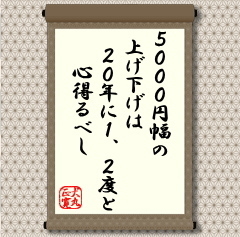 5000円幅の
上げ下げは
20年に1、2度と
心得るべし